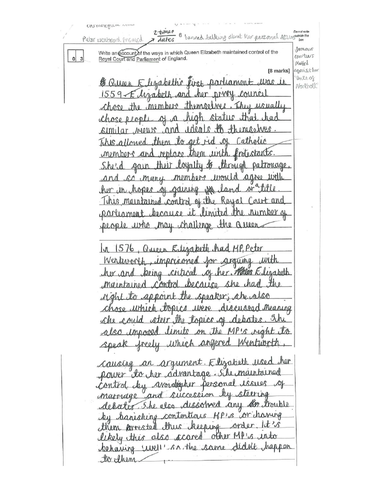 Peter Wentworth
0 3
Write an account of the ways in which Queen Elizabeth maintained control of the
Royal Court and Parliament of England.
[8 marks]
Queen Elizabeth's first parliament was in
1559. Elizabeth and her privy council
chose the members themselves. They usually
chose people of a high status that had
similar views and ideals to themselves.
This allowed them to get rid of Catholic
members and replace them with protestants.
She'd gain their loyalty through patronage
and so many members would agree with
her in hopes of gaining land or title
This maintained control of the Royal Court and
parliament because it limited the number of
people who may challenge the Queen
In 1576, Queen Elizabeth had MP, Peter
Wentworth, imprisoned for arguing with
her and being critical of her. Elizabeth
maintained control because she had the
right to appoint the speaker, she also
chose which topics were discussed meaning
she could steer the topics of debates. She
also imposed limits on the MP's right to
speak freely which angered Wentworth,
causing an argument. Elizabeth used her
power to her advantage. She maintained
control by avoiding her personal issues of
marriage and succession by steering
debates. She also dissolved any trouble
by banishing contentious MP's or having
them arrested thus keeping order. It's
likely this also scared other MP's into
behaving 'well' so the same didn't happen
to them